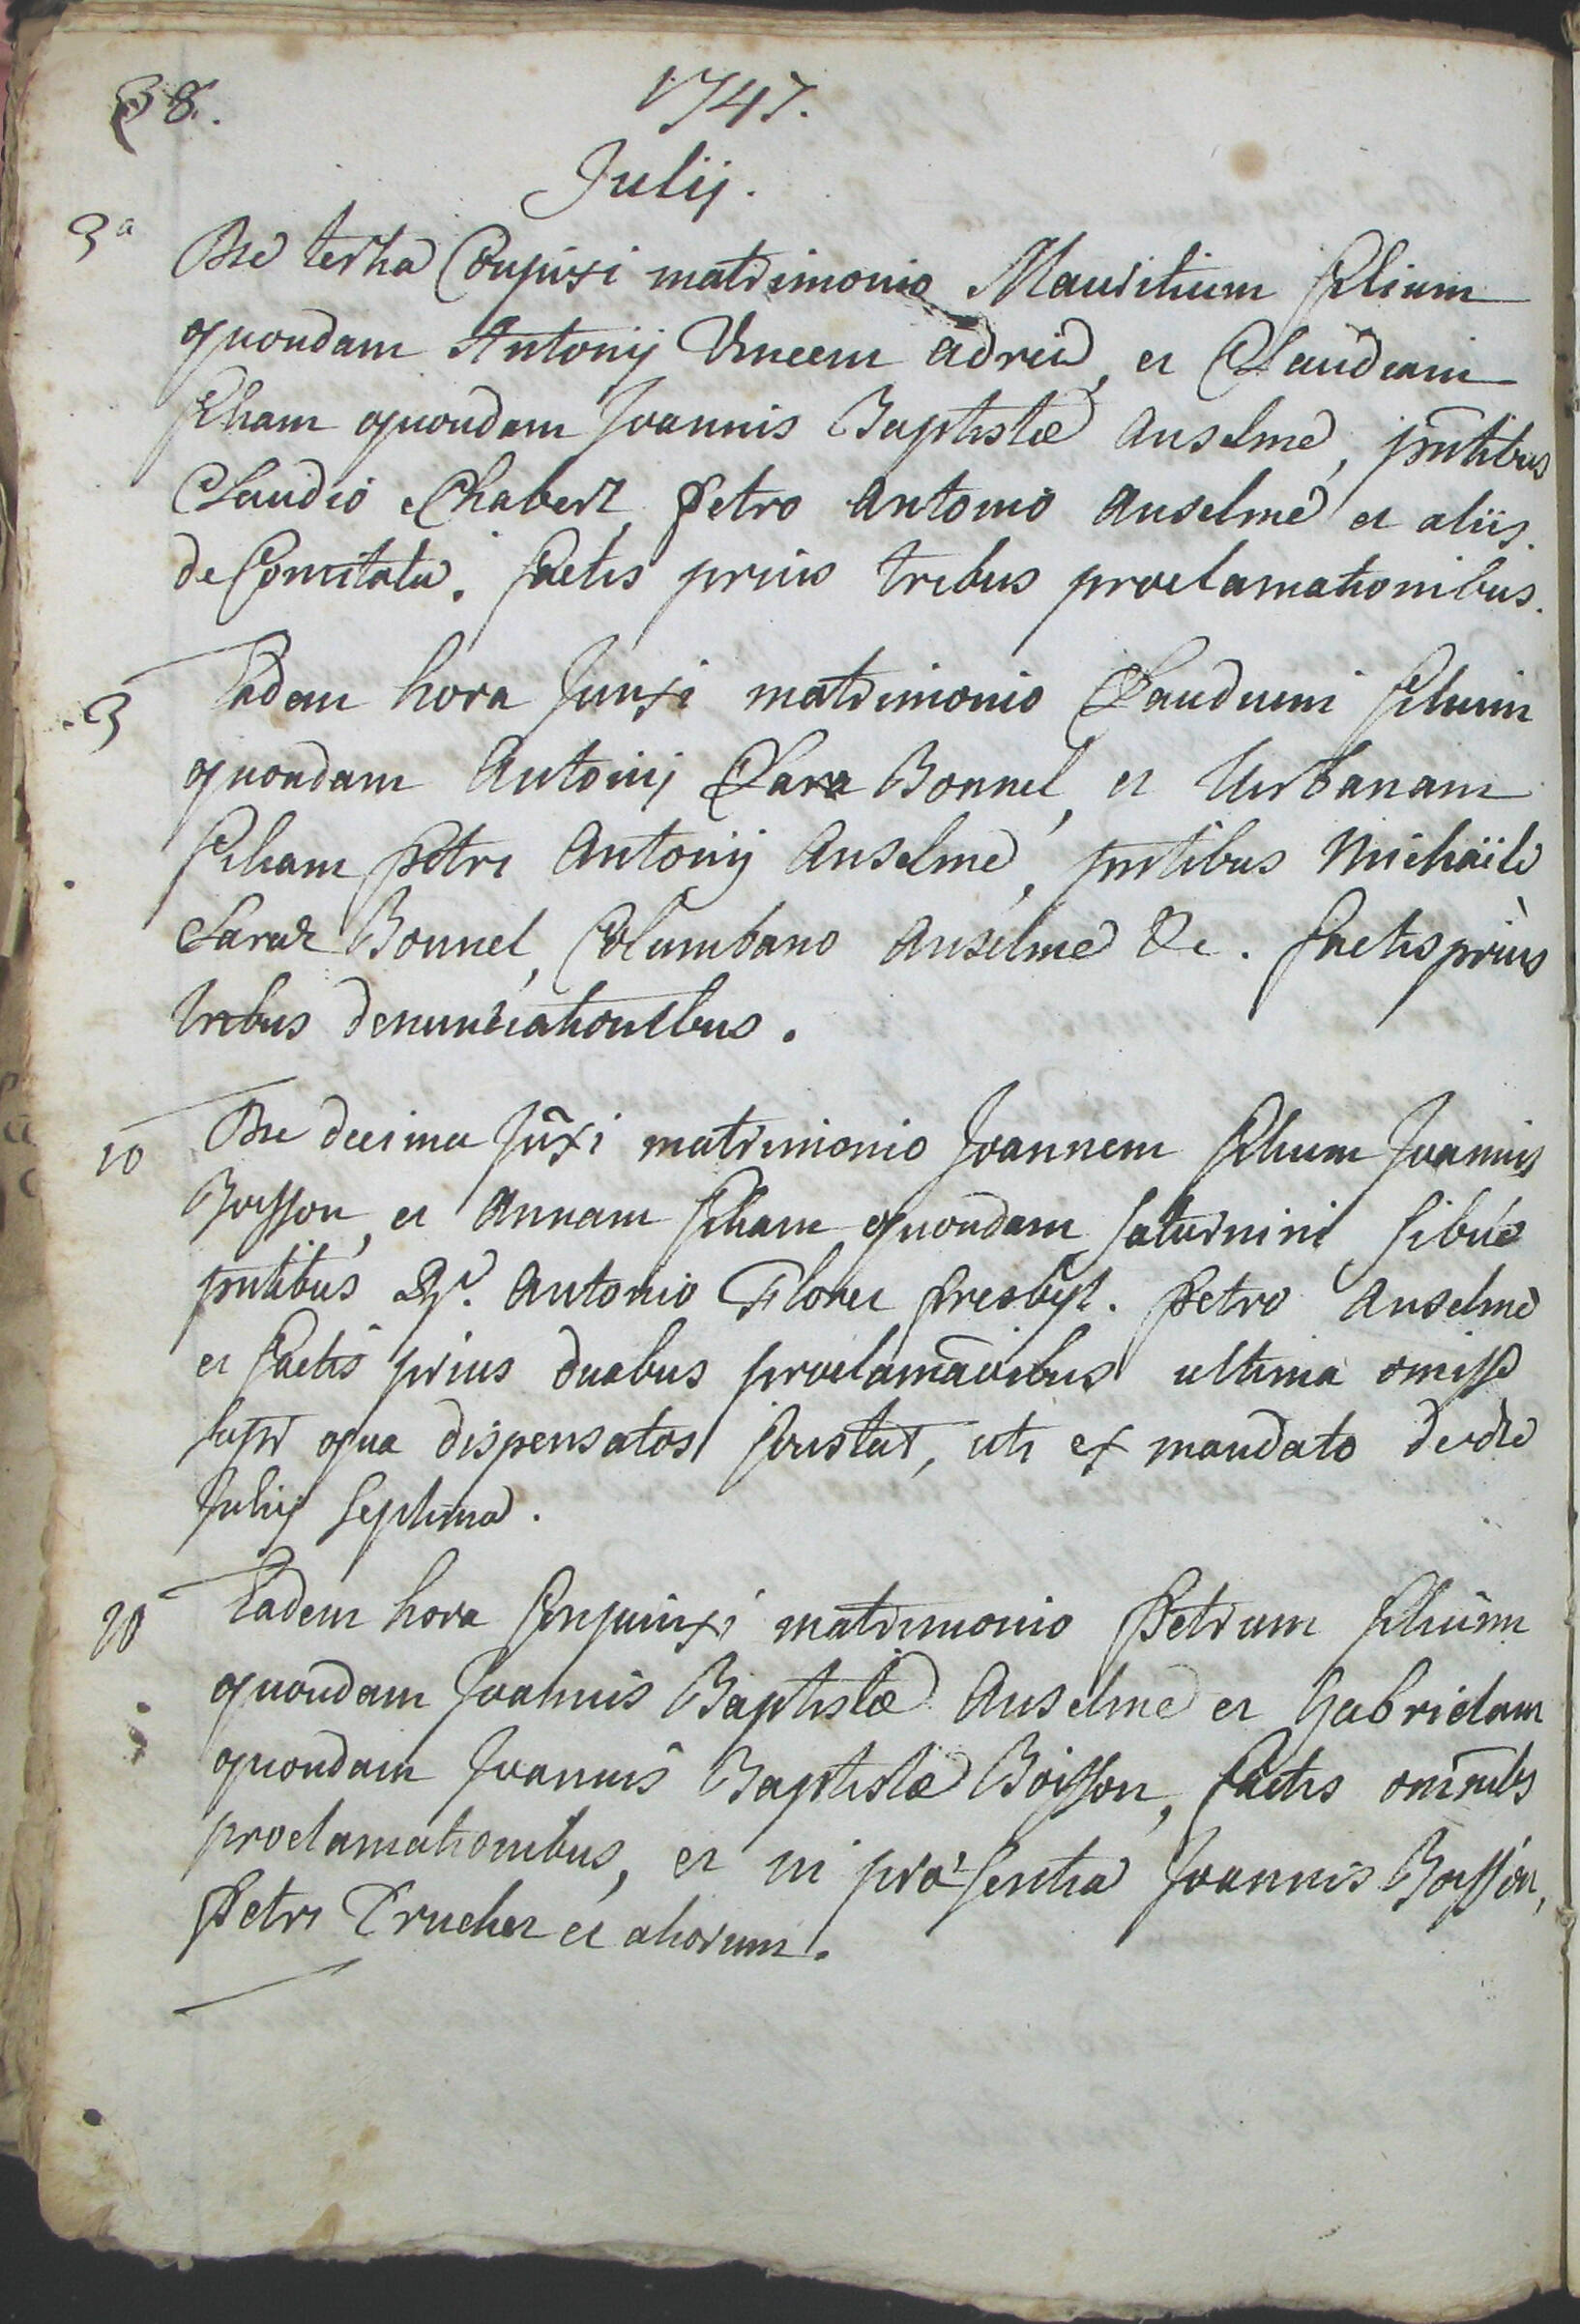 38.
1747.
Julij.
3a Die tertia Conjuxi matrimonio Mauritium filium
quondam Antonij Vincent adrie, et Claudiam
filiam quondam Joannis Baptistæ Anselme, pntibus
Claudio Chabert, Petro Antonio Anselme et aliis.
de Comitatu. factis prius tribus proclamationibus.
3 Eadem hora Junxi matrimonio Claudium filium
quondam Antonij Clara Bonnel, et Urbanam
filiam Petri Antonij Anselme, pntibus Michäile
Bonnel, Columbano Anselme &c. factis priùs
tribus denuntiationibus.
10 Die decima Jũxi matrimonio Joannem filium Joannis
Boisson, et Annam filiam quondam Saturnini Sibué
pntibus Antonio presbyt. Petro Anselme
et factis prius duabus proclamãoibus ultima omissa
supr qua dispensatos constat, uti ex mandato de die
Julij Septima.
10 Eadem hora Conjuinxi matrimonio Petrum filium
quondam Joannis Baptistæ Anselme et Gabrielam
quondam Joannis Baptistæ Boisson, factis omnibs
proclamationibus, et in præsentia Joannis Boisson,
Petri Trucher et aliorum.